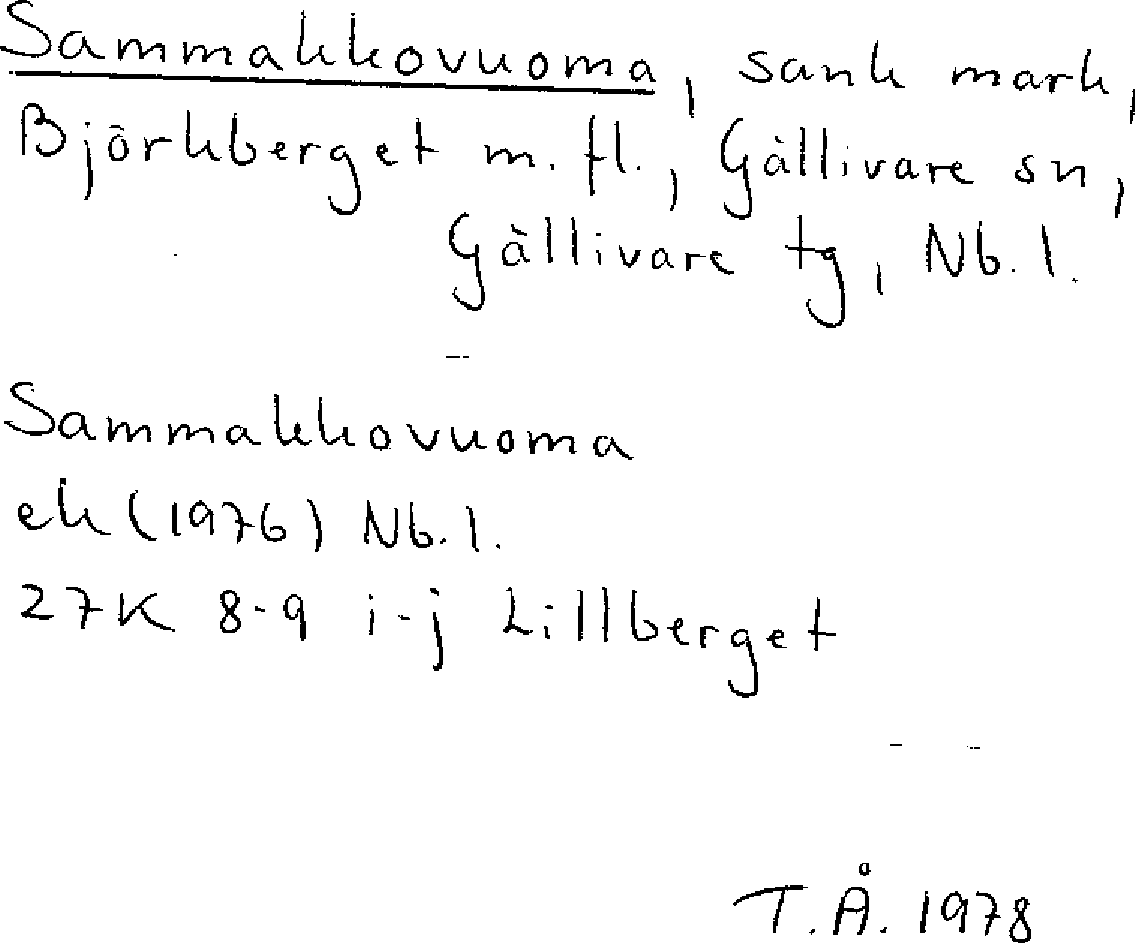 Sammakkovuoma, sank mark,
Björkberget m. fl., Gällivare sn,
Gällivare tg, Nb. l.
Sammakkovuoma
ek (1976) Nb. l.
27K 8-9 i-j Lillberget
T.Å. 1978